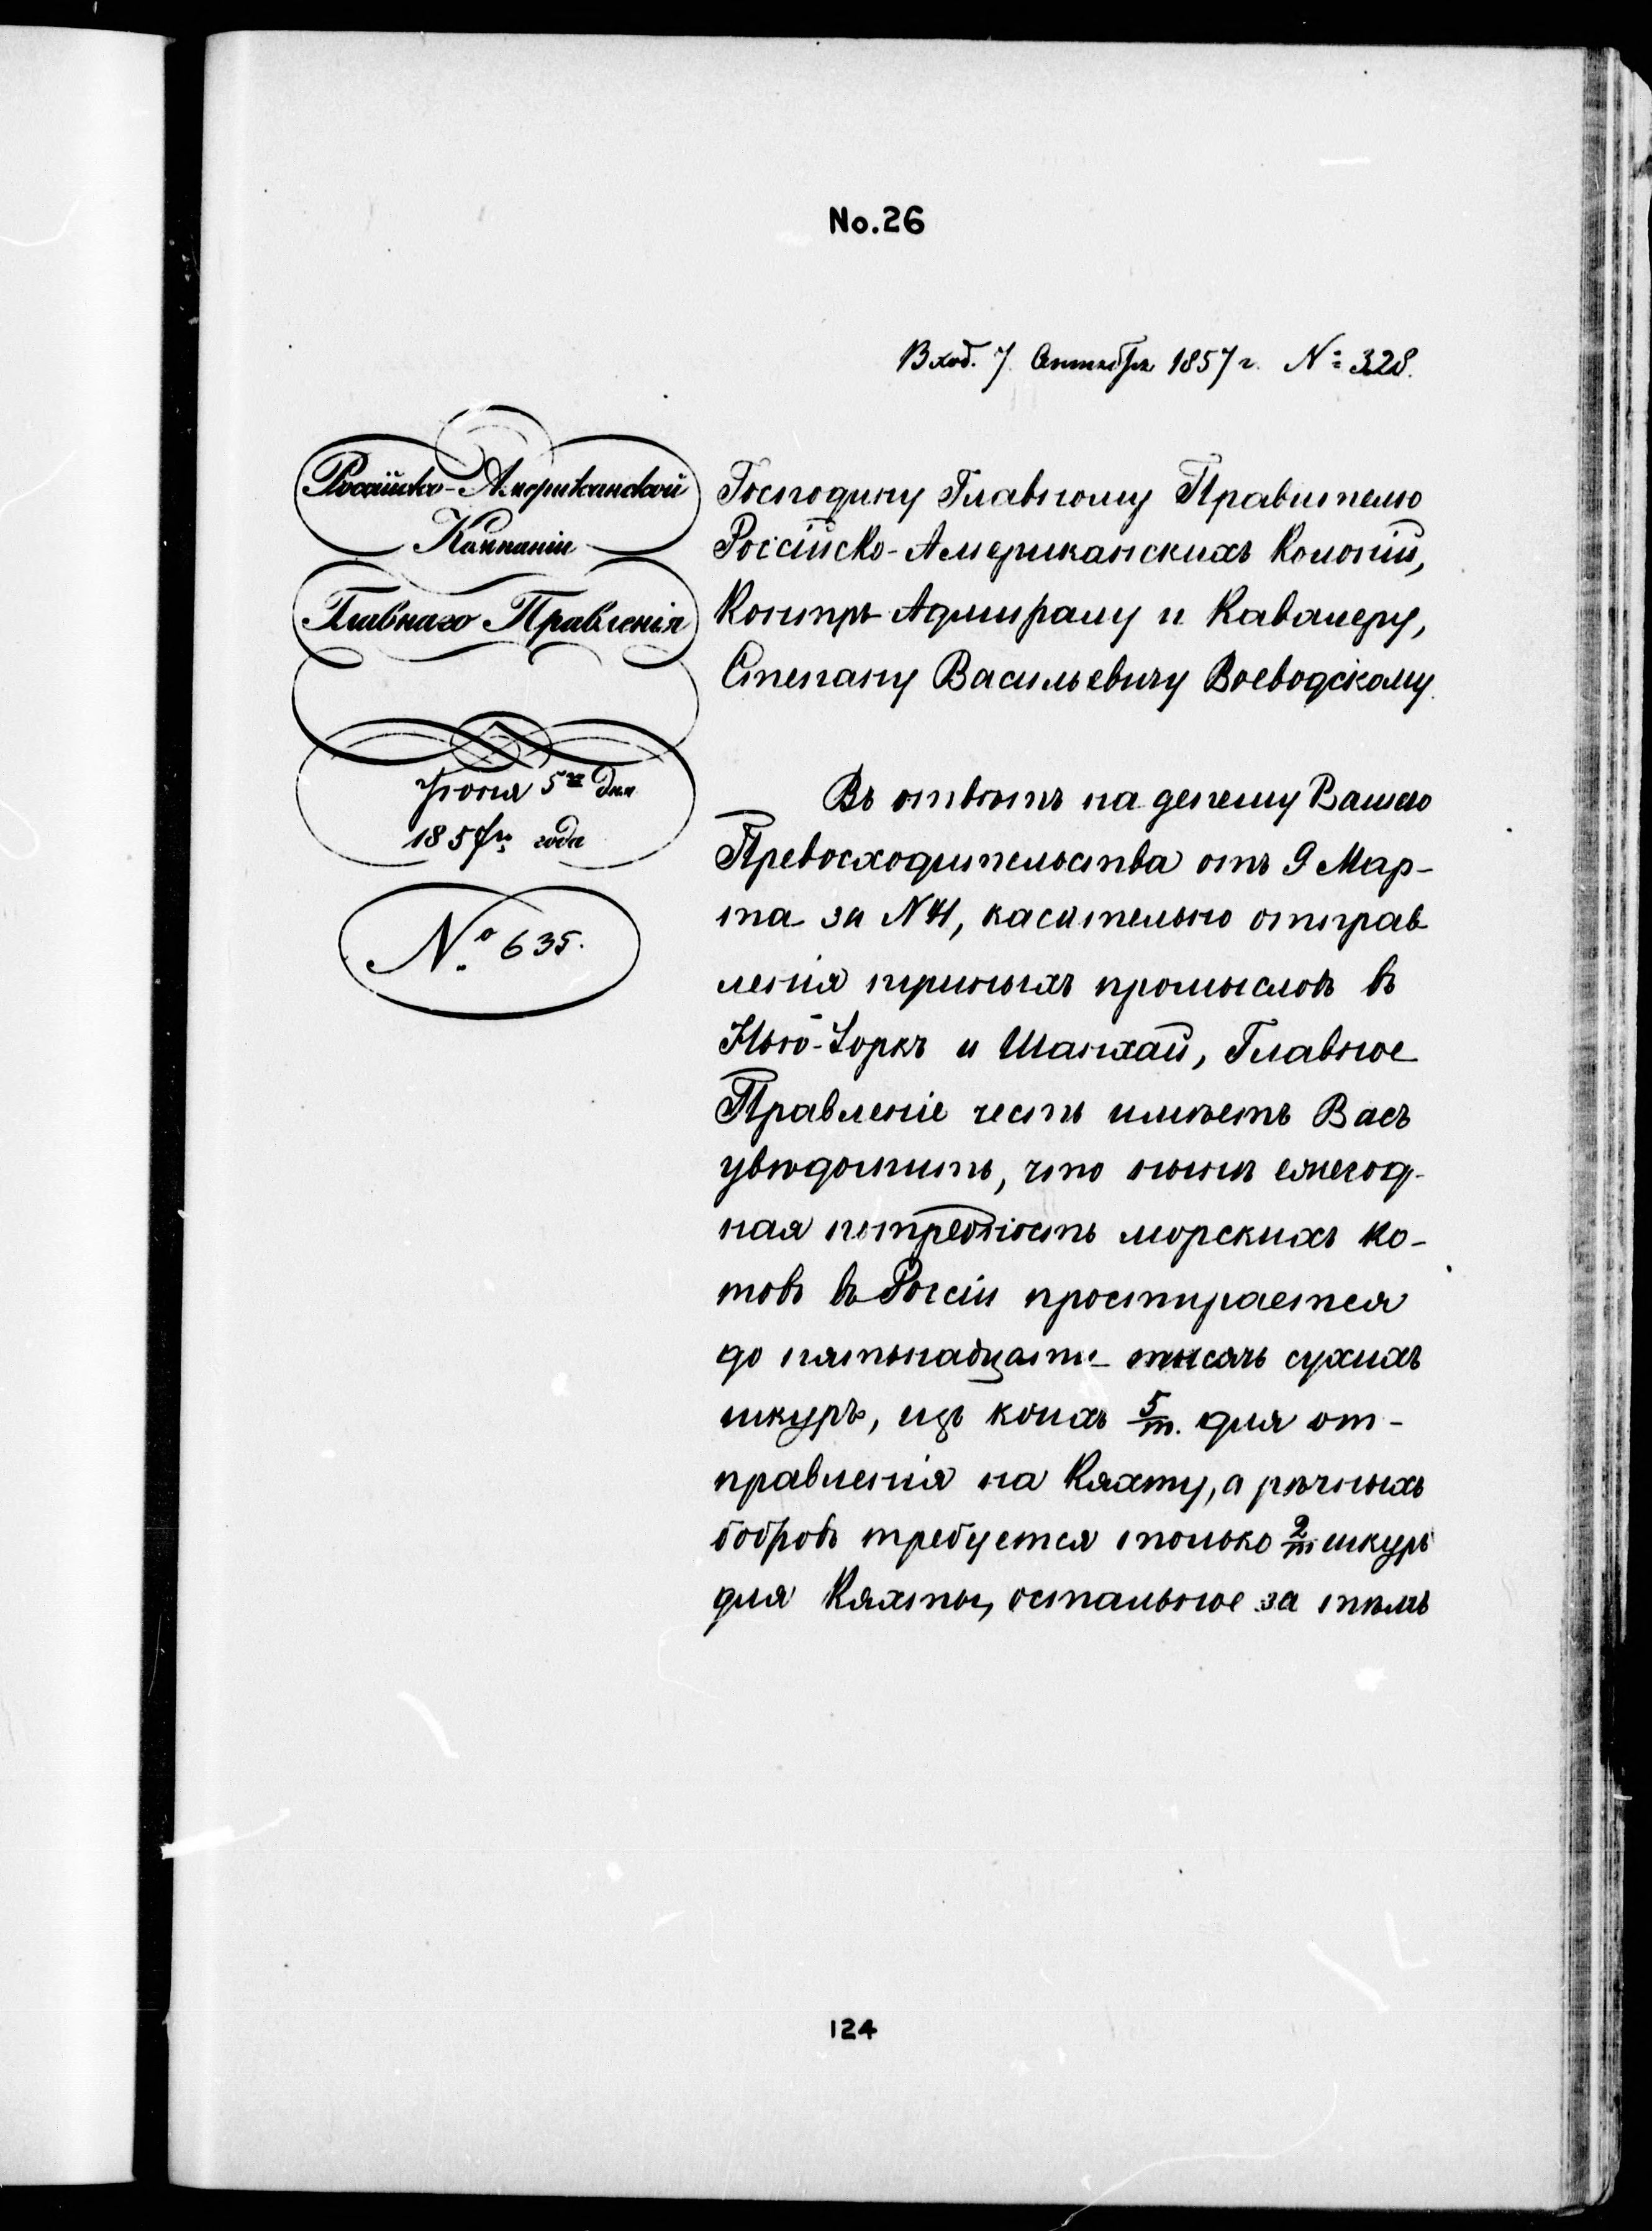 No.26
Вход. 7 Сентября 1857 г. № 328.
Россійско-Американской
Компаніи
Главнаго Правленія
Іюня 5го дня
1857го года
№ 635.
Господину Главному Правителю
Россійско-Американскихъ Колоній,
Контръ-Адмиралу и Кавалеру,
Степану Васильевичу Воеводскому.
Въ отвѣтъ на депешу Вашего
Превосходительства отъ 9 Мар-
та за №, касательно отправ
ленія промысловъ въ
Нью-Іоркъ и Шанхай, Главное
Правленіе честь имѣетъ Васъ
увѣдомить, что нынѣ ежегод-
ная потребность морскихъ ко-
товъ въ Россіи простирается
до пятьнадцати тысячъ сухихъ
шкуръ, изъ коихъ 5/т. для от-
правленія на Кяхту, а рѣчныхъ
бобровъ требуется только 2/т шкуръ
для Кяхты, остальное за тѣмъ
124